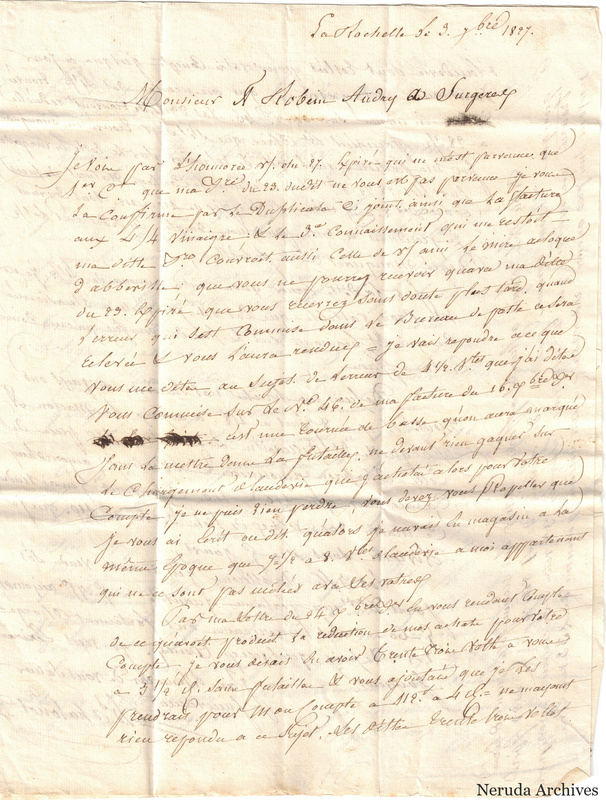 La Rochelle le 3. 7bre 1827.
Monsieur Robein Audry à Surgeres
Je vois par l'honorée v/. du 27. Expiré qui ne m'est parvenue que
1er Ct. que ma du 23. dudit ne vous est pas parvenue je vous
La Confirme par le Duplicata Ci joint, ainsi que La facture
aux 1/4 Vinaigre & Le 3e Connaissement qui me restoit
ma ditte Couvroit aussi Celle de v/ ami
d'abbeville; que vous ne pourrez recevoir qu'avec ma Lettre
du 23. Expiré que vous recevrez sans doute plus tard, quand
L'erreur qui s'est Commise dans le Bureau de poste se sera
relevée & vous L'aura rendue = Je vais repondre a ce que
Vous me dites au Sujet de L'erreur de 4 1/2 que j'ai dites
Vous Commise sur le No. 46. de ma facture du 16. Xbre
c'est une tournée de basse qu'on aura marqué
Sans La mettre dans La futaille, ne devant rien gagner sur
Le Chargement d'eaudevie que j'achetai alors pour Votre
Compte je ne puis rien perdre; vous devez vous rapeller que
Je vous ai Ecrit ou dit qu'alors je n'avais En magasin a La
même Epoque que 7 1/2 a 8. d'eaudevie a moi appartenant
qui ne se sont pas mêlées avec les votres
Par ma Lettre du 24 Xbre En vous rendant Compte
de ce qu'avoit produit La reduction de mes achats pour Votre
Compte je vous disais En avoir Trente trois Velte a vous
a 3 1/2 d. sans futaille & vous ajoutais que je Les
prendrais pour Mon Compte a 112f a 4 d = ne m'ayant
rien repondu a ce Sujet, Les dittes trente trois Veltes
Neruda Archives